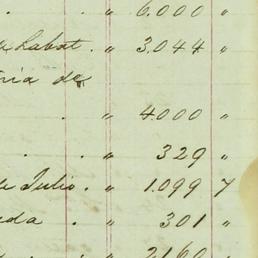 . " 6.000 "
a Labat . " 3,044 "
ria de
. " 4000 "
. . " 329 "
e Julio . " 1.099 7
da . " 301 "
. . " 2160 "